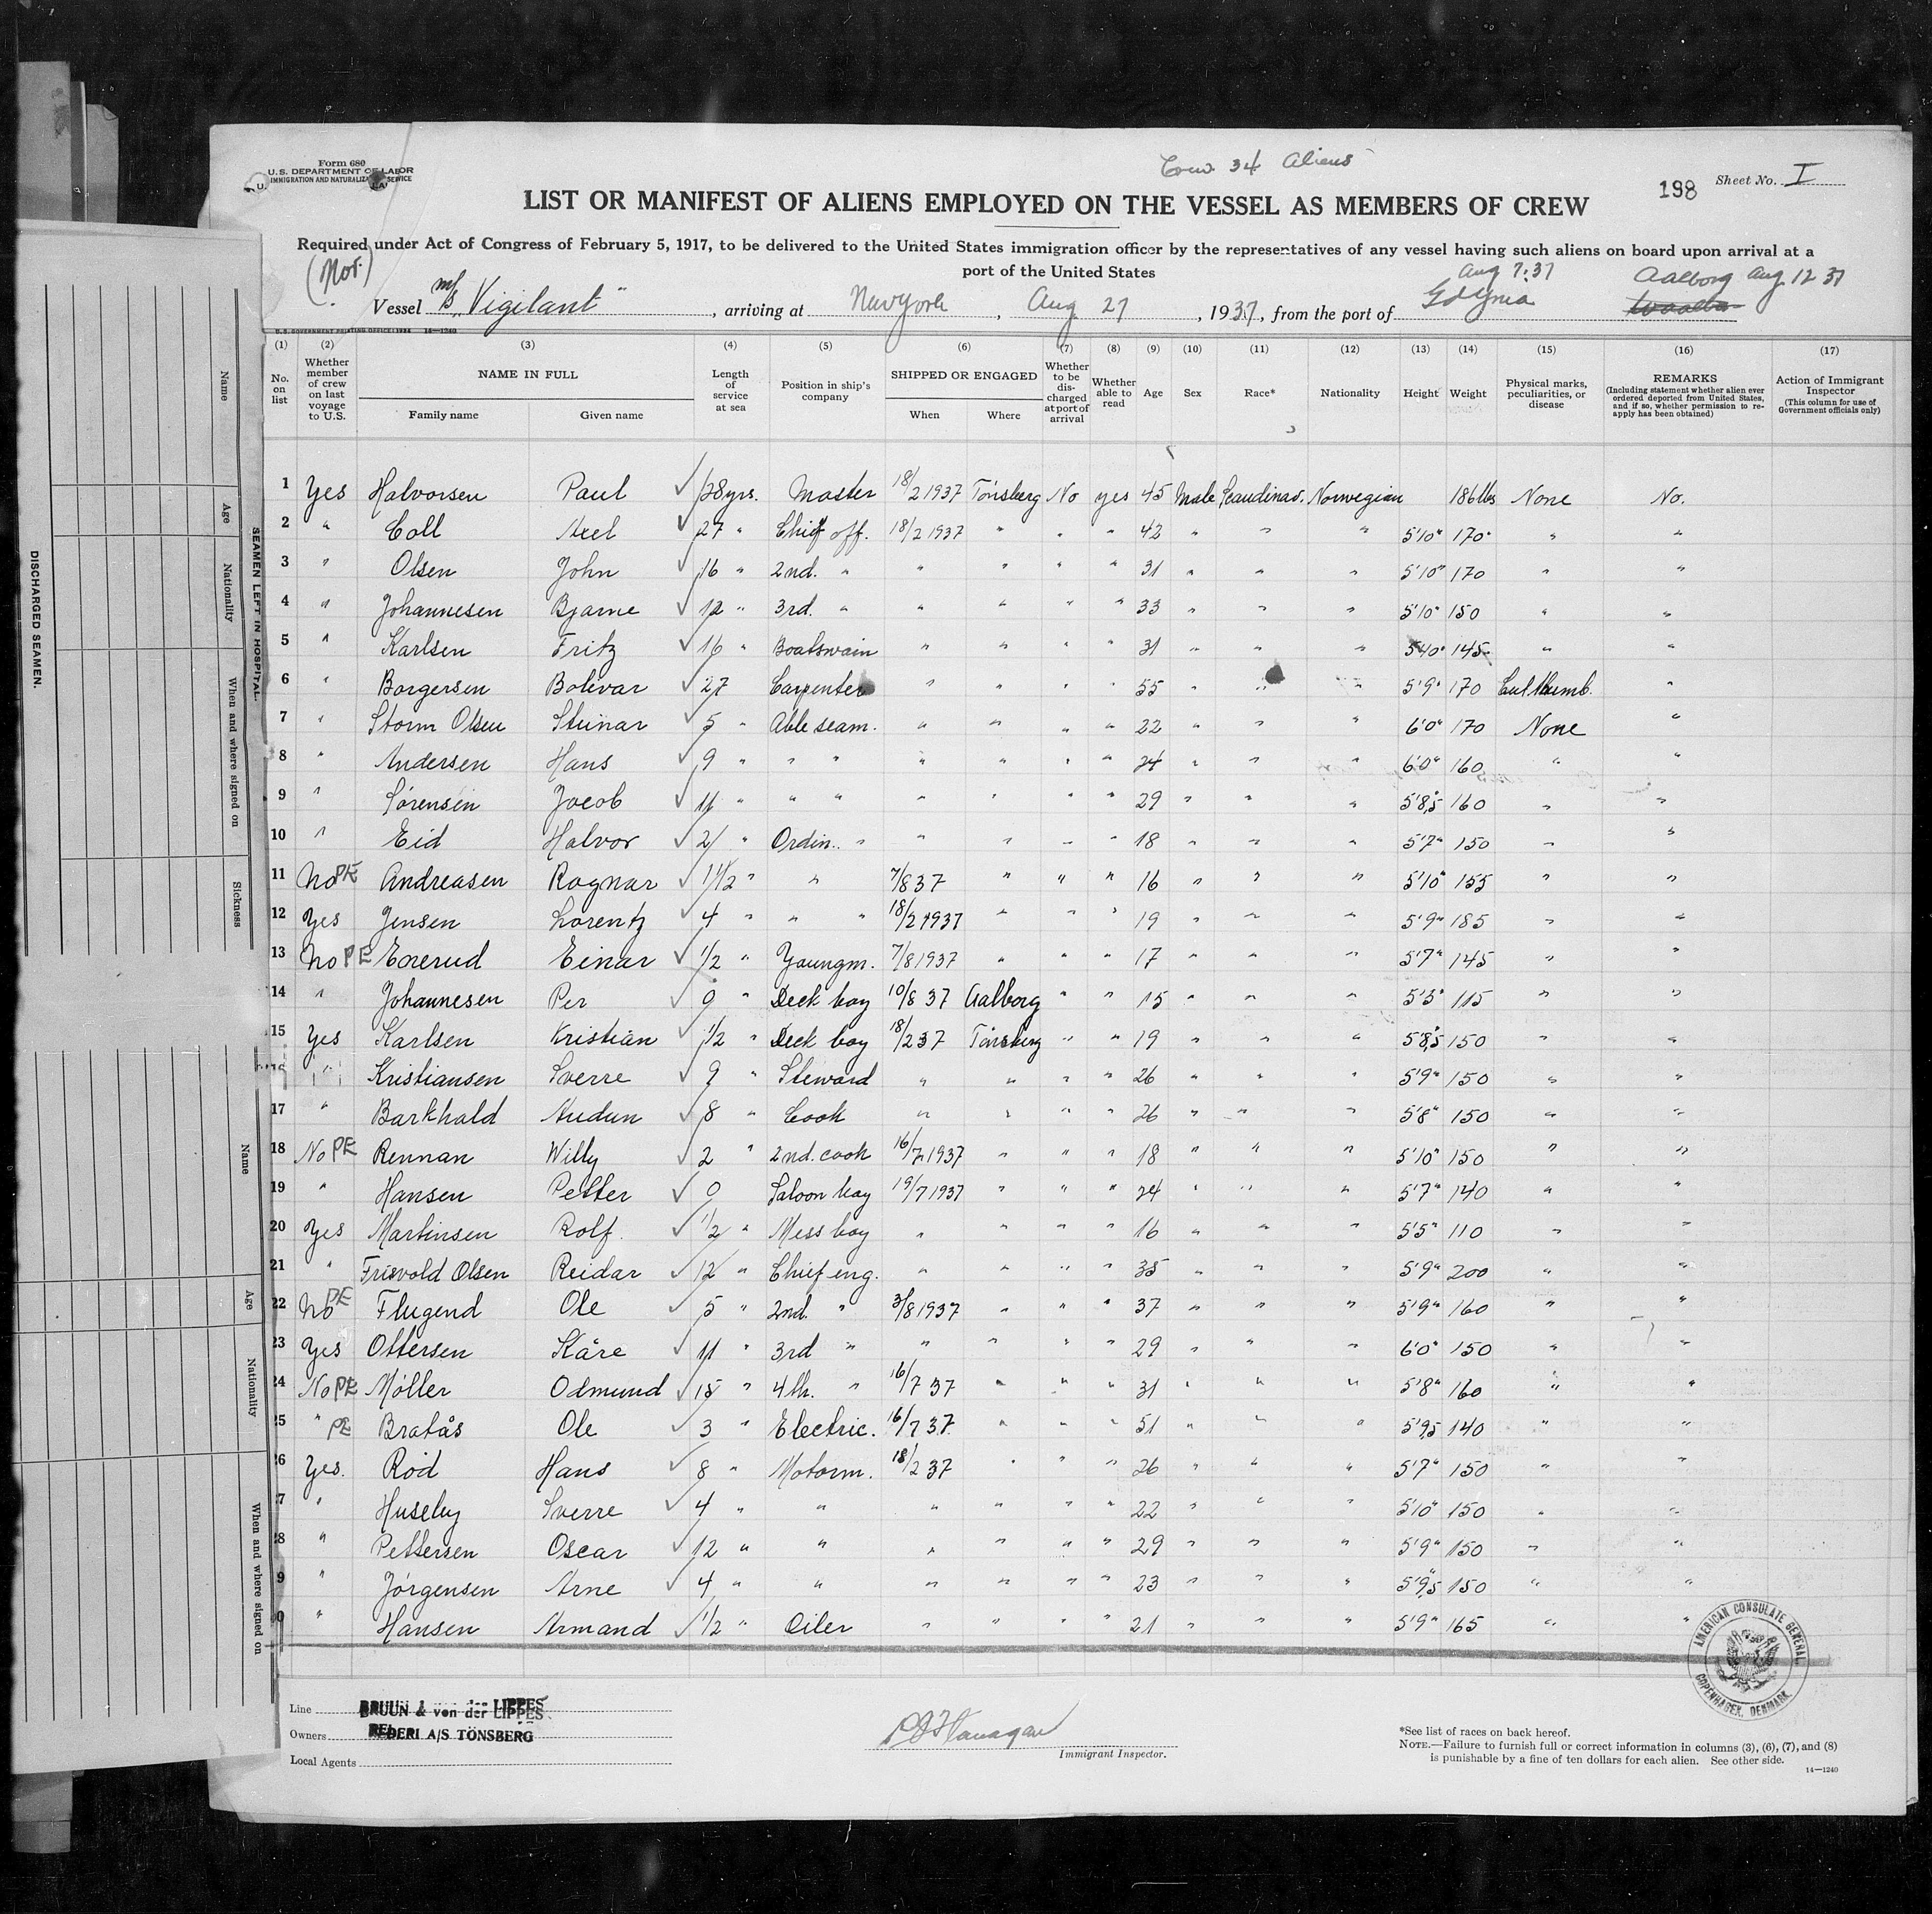 Form 680
U.S. DEPARTMENT OF LABOR
IMMIGRATION AND NATURALIZATION SERVICE
Crew 34 Aliens
198 Sheet No. I
LIST OR MANIFEST OF ALIENS EMPLOYED ON THE VESSEL AS MEMBERS OF CREW
Required under Act of Congress of February 5, 1917, to be delivered to the United States immigration officer by the representatives of any vessel having such aliens on board upon arrival at a
port of the United States
(Nor.) Aug 7-37 Aalborg Aug 12 37
Vessel M/S „Vigilant" , arriving at New York , Aug 27 , 1937, from the port of Gdynia
U.S. GOVERNMENT PRINTING OFFICE: 1934 14—1240
(1) (2) (3) (4) (5) (6) (7) (8) (9) (10) (11) (12) (13) (14) (15) (16) (17)
No. on list
Whether member of crew on last voyage to U.S.
NAME IN FULL
Family name Given name
Length of service at sea
Position in ship's company
SHIPPED OR ENGAGED
When Where
Whether to be discharged at port of arrival
Whether able to read
Age Sex Race* Nationality Height Weight
Physical marks, peculiarities, or disease
REMARKS
(Including statement whether alien ever ordered deported from United States, and if so, whether permission to reapply has been obtained)
Action of Immigrant Inspector
(This column for use of Government officials only)
1 Yes Halvorsen Paul ✓ 28 yrs. Master 18/2 1937 Tönsberg No yes 45 Male Scandinav. Norwegian 186 lbs None No.
2 " Coll Axel ✓ 27 " Chief off. 18/2 1937 " " " 42 " " " 5'10" 170 " "
3 " Olsen John ✓ 16 " 2nd. " " " " " 31 " " " 5'10" 170 " "
4 " Johannesen Bjarne ✓ 12 " 3rd. " " " " " 33 " " " 5'10" 150 " "
5 " Karlsen Fritz ✓ 16 " Boatswain " " " " 31 " " " 5'10" 145 " "
6 " Borgersen Bolivar ✓ 27 " Carpenter " " " " 55 " " " 5'9" 170 Cut thumb. "
7 " Storm Olsen Steinar ✓ 5 " Able seam. " " " " 22 " " " 6'0" 170 None "
8 " Andersen Hans ✓ 9 " " " " " " " 24 " " " 6'0" 160 " "
9 " Sørensen Jacob ✓ 11 " " " " " " " 29 " " " 5'8,5" 160 " "
10 " Eid Halvor ✓ 2 " Ordin. " " " " " 18 " " " 5'7" 150 " "
11 No PE Andreasen Ragnar ✓ 1 1/2 " " 7/8 37 " " " 16 " " " 5'10" 155 " "
12 Yes Jensen Lorentz ✓ 4 " " " 18/2 1937 " " " 19 " " " 5'9" 185 " "
13 No PE Enerud Einar ✓ 1/2 " Youngm. 7/8 1937 " " " 17 " " " 5'7" 145 " "
14 " Johannesen Per ✓ 0 " Deck boy 10/8 37 Aalborg " " 15 " " " 5'3" 115 " "
15 Yes Karlsen Kristian ✓ 1/2 " Deck boy 18/2 37 Tönsberg " " 19 " " " 5'8,5" 150 " "
" Kristiansen Sverre ✓ 9 " Steward " " " " 26 " " " 5'9" 150 " "
17 " Barkhald Audun ✓ 8 " Cook " " " " 26 " " " 5'8" 150 " "
18 No PE Rennan Willy ✓ 2 " 2nd. cook 16/7 1937 " " " 18 " " " 5'10" 150 " "
19 " Hansen Petter ✓ 0 Saloon boy 19/7 1937 " " " 24 " " " 5'7" 140 " "
20 Yes Martinsen Rolf. ✓ 1/2 " Mess boy " " " " 16 " " " 5'5" 110 " "
21 " Frisvold Olsen Reidar ✓ 12 " Chief eng. " " " " 35 " " " 5'9" 200 " "
22 No PE Flugend Ole ✓ 5 " 2nd. " 3/8 1937 " " " 37 " " " 5'9" 160 " "
23 Yes Ottersen Kåre ✓ 11 " 3rd " " " " " 29 " " " 6'0" 150 " "
24 No PE Møller Odmund ✓ 15 " 4th. " 16/7 37 " " " 31 " " " 5'8" 160 " "
25 " PE Bratås Ole ✓ 3 " Electric. 16/7 37 " " " 51 " " " 5'9,5 140 " "
26 Yes. Röd Hans ✓ 8 " Motorm. 18/2 37 " " " 26 " " " 5'7" 150 " "
27 " Huseby Sverre ✓ 4 " " " " " " 22 " " " 5'10" 150 " "
28 " Pettersen Oscar ✓ 12 " " " " " " 29 " " " 5'9" 150 " "
9 " Jörgensen Arne ✓ 4 " " " " " " 23 " " " 5'9,5" 150 " "
0 " Hansen Armand ✓ 1/2 " Oiler " " " " 21 " " " 5'9" 165 " "
AMERICAN CONSULATE GENERAL. COPENHAGEN, DENMARK
Line BRUUN & von der LIPPES
Owners REDERI A/S TÖNSBERG
Local Agents
Immigrant Inspector.
*See list of races on back hereof.
NOTE.—Failure to furnish full or correct information in columns (3), (6), (7), and (8)
is punishable by a fine of ten dollars for each alien. See other side.
14—1240
DISCHARGED SEAMEN.
SEAMEN LEFT IN HOSPITAL.
Name
Age
Nationality
When and where signed on
Sickness
Name
Age
Nationality
When and where signed on